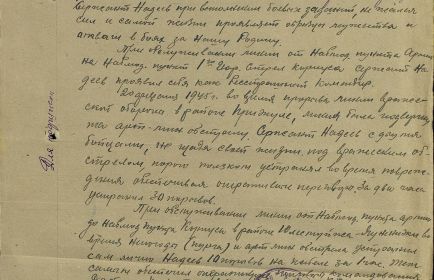 Сержант Надеев при выполнении боевых заданий, не жалея
сил и самой жизни проявляет образец мужества и
отваги в боях за нашу Родину.
При обслуживании линии от Наблюд пункта Армии
на Наблюд. пункт 1го Гвар. Стрел Корпуса Сержант На-
деев проявил себя как бесстрашный командир.
1945 г. во время прорыва линии вражес-
кой обороны в районе линия была подвергну-
та арт-мин обстрелу. Сержант Надеев с двумя
бойцами, не щадя своей жизни под вражеским об-
стрелом, порой ползком устранял во время повреж-
дения обеспечивая оперативные переговоры. За два часа
устранил 30 порывов.
При обслуживании линии от Наблюд. пункта армии
до Наблюд пункта Корпуса в районе во
время непогоды и арт-мин обстрела устранил
сам лично Надеев 10 порывов на кабеле за 1 час. Тем
самым обеспечил командования
Для подписи